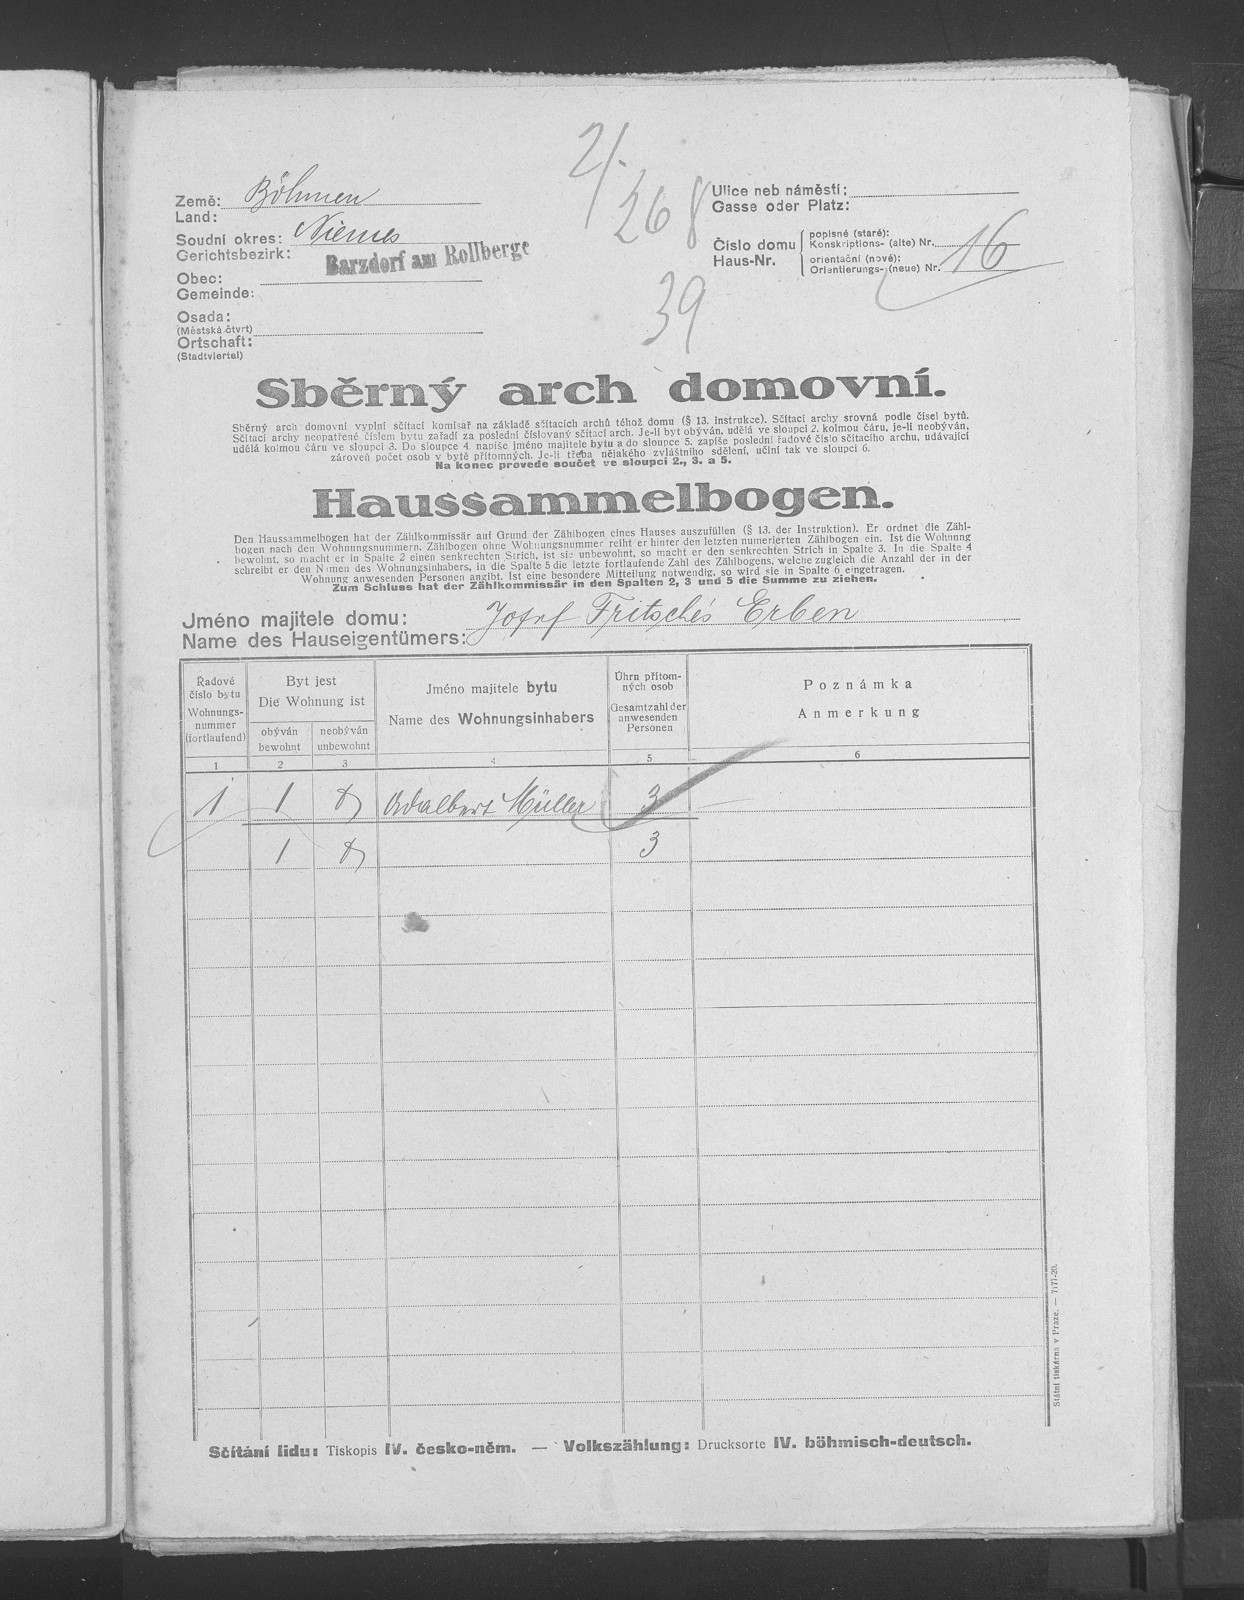 2/.
268
39
Země: Böhmen
Land:
Soudní okres: Niemes
Gerichtsbezirk:
Barzdorf am Rollberge
Obec:
Gemeinde:
Osada:
(Městská čtvrt)
Ortschaft:
(Stadtviertel)
Ulice neb náměstí:
Gasse oder Platz:
Číslo domu
Haus-Nr.
popisné (staré):
Konskriptions- (alte) Nr.
orientační (nové):
Orientierungs- (neue) Nr.
16
Sběrný arch domovní.
Sběrný arch domovní vyplní sčítací komisař na základě sčítacích archů téhož domu (§ 13. instrukce). Sčítací archy srovná podle čísel bytů.
Sčítací archy neopatřené číslem bytu zařadí za poslední číslovaný sčítací arch. Je-li byt obýván, udělá ve sloupci 2. kolmou čáru, je-li neobýván,
udělá kolmou čáru ve sloupci 3. Do sloupce 4. napíše jméno majitele bytu a do sloupce 5. zapíše poslední řadové číslo sčítacího archu, udávající
zároveň počet osob v bytě přítomných. Je-li třeba nějakého zvláštního sdělení, učiní tak ve sloupci 6.
Na konec provede součet ve sloupci 2., 3. a 5.
Haussammelbogen.
Den Haussammelbogen hat der Zählkommissär auf Grund der Zählbogen eines Hauses auszufüllen (§ 13. der Instruktion). Er ordnet die Zähl-
bogen nach den Wohnungsnummern. Zählbogen ohne Wohnungsnummer reiht er hinter den letzten numerierten Zählbogen ein. Ist die Wohnung
bewohnt, so macht er in Spalte 2 einen senkrechten Strich, ist sie unbewohnt, so macht er den senkrechten Strich in Spalte 3. In die Spalte 4
schreibt er den Namen des Wohnungsinhabers, in die Spalte 5 die letzte fortlaufende Zahl des Zählbogens, welche zugleich die Anzahl der in der
Wohnung anwesenden Personen angibt. Ist eine besondere Mitteilung notwendig, so wird sie in Spalte 6 eingetragen.
Zum Schluss hat der Zählkommissär in den Spalten 2, 3 und 5 die Summe zu ziehen.
Jméno majitele domu: Josef Fritsche's Erben
Name des Hauseigentümers:
Řadové
číslo bytu
Wohnungs-
nummer
(fortlaufend)
Byt jest
Die Wohnung ist
obýván
bewohnt
neobýván
unbewohnt
Jméno majitele bytu
Name des Wohnungsinhabers
Úhrn přítom-
ných osob
Gesamtzahl der
anwesenden
Personen
Poznámka
Anmerkung
1 2 3 4 5 6
1 1 Adalbert Müller 3
1 3
Sčítání lidu: Tiskopis IV. česko-něm. — Volkszählung: Drucksorte IV. böhmisch-deutsch.
Státní tiskárna v Praze. — 7177-20.